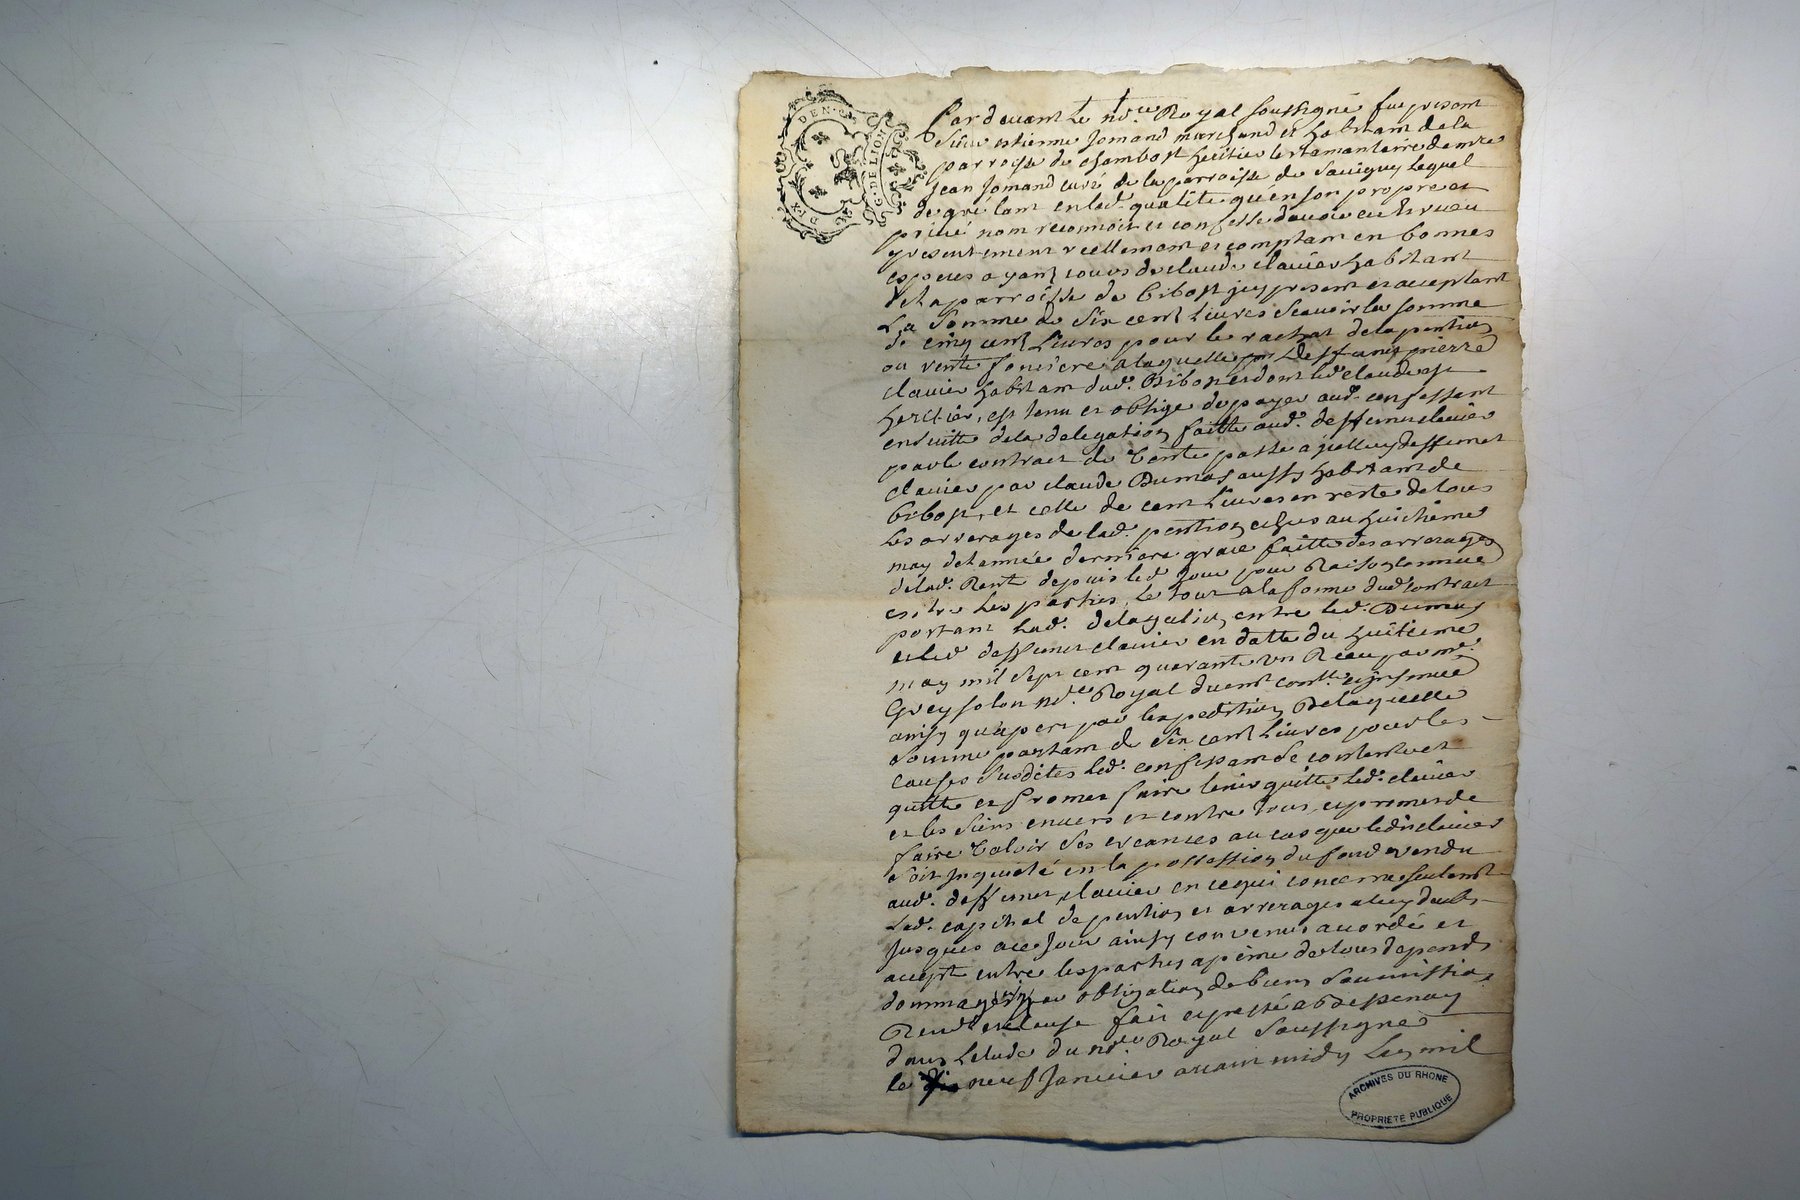 DEN
G. DE LION
DIX
Par devant le no.re Royal soussigné fut present
Sieur estienne Jomand marchand et habitant de la
parroisse de Chambost heritier testamantaire de mre
Jean Jomand curé de la parroisse de Savigny lequel
de gré tant en lad. qualité qu'en son propre et
privé nom reconnoit et confesse d'avoir eu et receu
presentement reellement et comptant en bonnes
especes ayant cours de claude clavier habitant
de la parroisse de Bibost icy present et acceptant
La somme de six cent livres scavoir la somme
de cinq cent livres pour le rachat de la pention
ou rente fonciere a laquelle deffunt pierre
clavier habitant dud. Bibost et dont led. claude est
heritier, est tenu et obligé de payer aud. confessant
ensuitte de la delegation faitte aud. deffunt clavier
par le contract de vente passé a icelluy deffunt
clavier par claude Dumas aussy habitant de
Bibost, et celle de cent livres en reste de tous
les arrerages de lad. pention echus au huictieme
may de lannée derniere grace faitte des arrerages
de lad. Rente depuis led. jour pour Raison connue
entre les parties, le tout a la forme dud. contract
portant lad. delegation entre led. Dumas
et led. deffunt clavier en datte du huitieme
may mil sept cent quarante un Receu par me.
Greysolon no.re Royal duemt conllé. et insinué
ainsy qu'apert par l'expedition de laquelle
somme partant de six cent livres pour les
causes susdites led. confessant se contente et
quitte et promet faire tenir quitte led. clavier
et les siens envers et contre tous, et promet de
faire valoir ses creances au cas que led. clavier
soit inquieté en la possession du fond vendu
aud. deffunt clavier en ce qui concerne seulemt
led. capital de pention et arrerages a luy deubs
jusques a ce jour ainsy convenu accordé et
accepté entre les parties a peine de tous depends
dommages par obligation de biens soumission
Renon et clause fait et passé a Bessenay
dans l'etude du no.re Royal soussigné
le neuf Janvier avant midy Lan mil
ARCHIVES DU RHONE
PROPRIETE PUBLIQUE